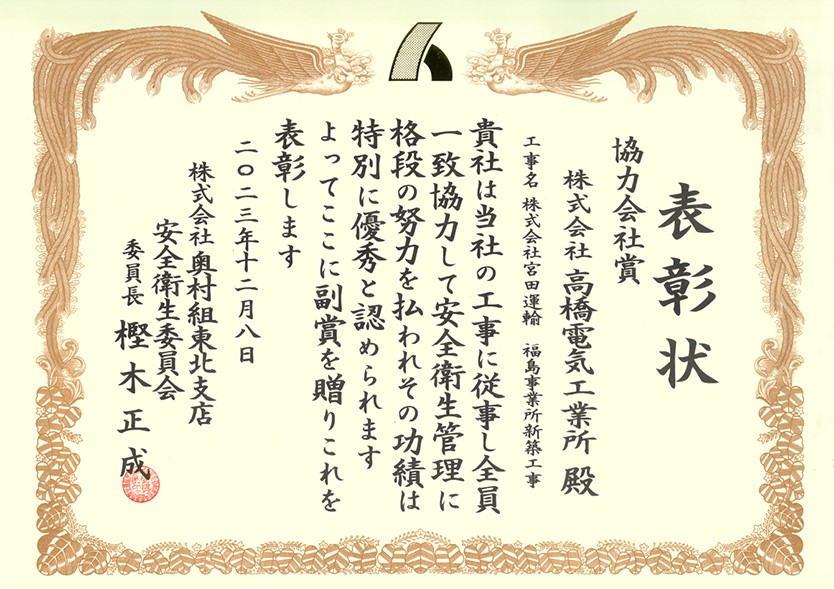 表彰状
協力会社賞
株式会社 高橋電気工業所 殿
工事名 株式会社宮田運輸 福島事業所新築工事
貴社は当社の工事に従事し全員
一致協力して安全衛生管理に
格段の努力を払われその功績は
特別に優秀と認められます
よってここに副賞を贈りこれを
表彰します
二〇二三年十二月八日
株式会社 奥村組東北支店
安全衛生委員会
委員長 樫木正成